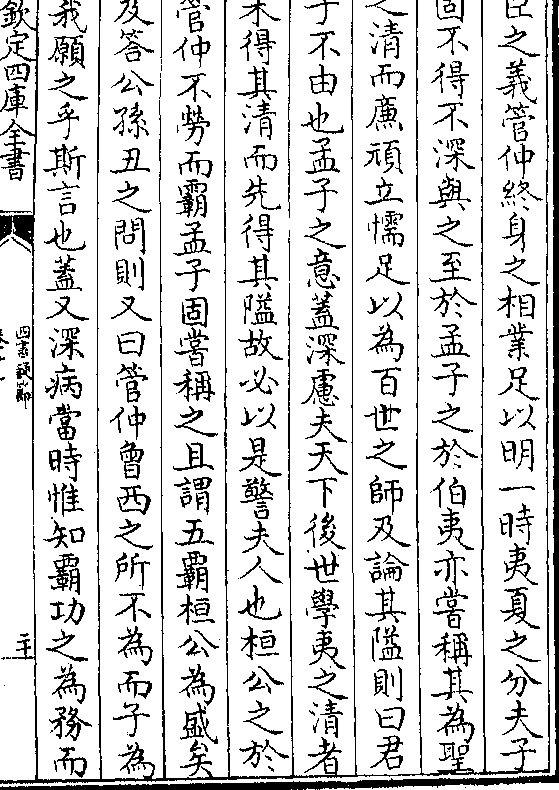 臣之義管仲終身之相業足以明一時夷夏之分夫子
固不得不深與之至於孟子之於伯夷亦嘗稱其為聖
之清而廉頑立懦足以為百世之師及論其隘則曰君
子不由也孟子之意蓋深慮夫天下後世學夷之清者
未得其清而先得其隘故必以是警夫人也桓公之於
管仲不勞而霸孟子固嘗稱之且謂五霸桓公為盛矣
及答公孫丑之問則又曰管仲曾西之所不為而子為
我願之乎斯言也蓋又深病當時惟知霸功之為務而
欽定四庫全書
四書疑節
二十